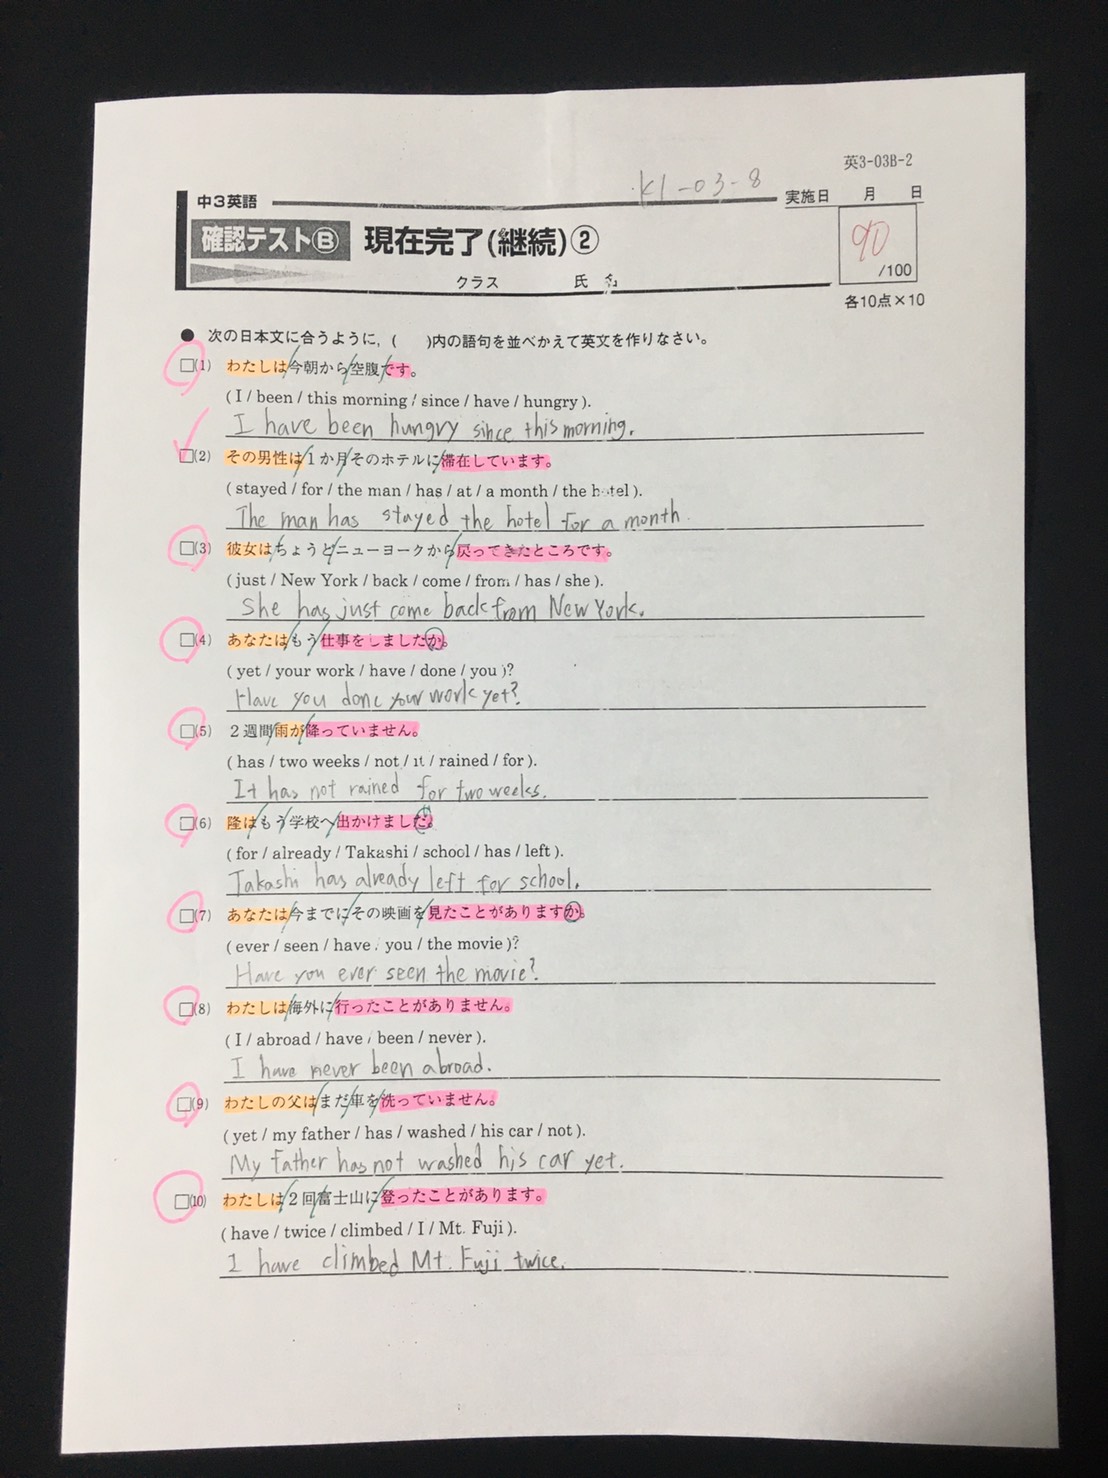 英3-03B-2
K1-03-8
中3英語
実施日 月 日
確認テストⒷ 現在完了(継続)②
90
/100
クラス 氏名
各10点×10
● 次の日本文に合うように,( )内の語句を並べかえて英文を作りなさい。
□(1) わたしは今朝から空腹です。
( I / been / this morning / since / have / hungry ).
I have been hungry since this morning.
□(2) その男性は1か月そのホテルに滞在しています。
( stayed / for / the man / has / at / a month / the hotel ).
The man has stayed the hotel for a month.
□(3) 彼女はちょうどニューヨークから戻ってきたところです。
( just / New York / back / come / from / has / she ).
She has just come back from New York.
□(4) あなたはもう仕事をしましたか。
( yet / your work / have / done / you )?
Have you done your work yet?
□(5) 2週間雨が降っていません。
( has / two weeks / not / it / rained / for ).
It has not rained for two weeks.
□(6) 隆はもう学校へ出かけました。
( for / already / Takashi / school / has / left ).
Takashi has already left for school.
□(7) あなたは今までにその映画を見たことがありますか。
( ever / seen / have / you / the movie )?
Have you ever seen the movie?
□(8) わたしは海外に行ったことがありません。
( I / abroad / have / been / never ).
I have never been abroad.
□(9) わたしの父はまだ車を洗っていません。
( yet / my father / has / washed / his car / not ).
My father has not washed his car yet.
□(10) わたしは2回富士山に登ったことがあります。
( have / twice / climbed / I / Mt. Fuji ).
I have climbed Mt. Fuji twice.